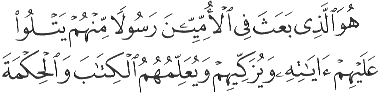 هُوَ ٱلَّذِى بَعَثَ فِى ٱلْأُمِّيِّـۧنَ رَسُولًا مِّنْهُمْ يَتْلُوا۟
عَلَيْهِمْ ءَايَـٰتِهِۦ وَيُزَكِّيهِمْ وَيُعَلِّمُهُمُ ٱلْكِتَـٰبَ وَٱلْحِكْمَةَ